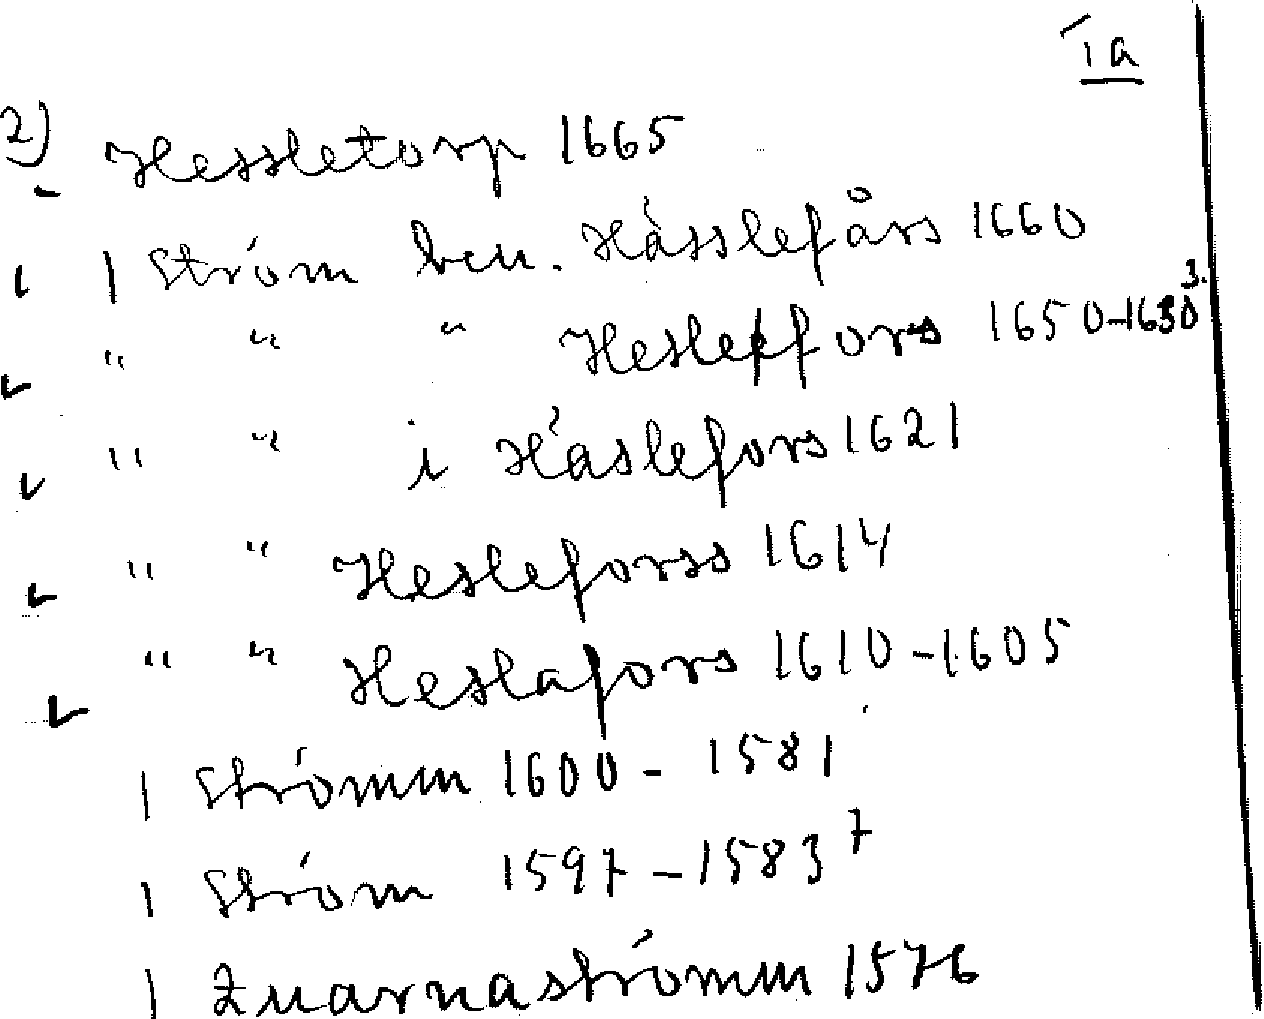 1a
2) Hessletorp 1665
1 Ström ben. Hässlefårs 1660
" " " Heslepfors 1650-1630 3.
" " i Häslefors 1621
" " Hesleforss 1614
" " Heslafors 1610-1605
1 Strömm 1600 - 1581
1 Ström 1597-1583 7
1 Quarnaströmm 1576